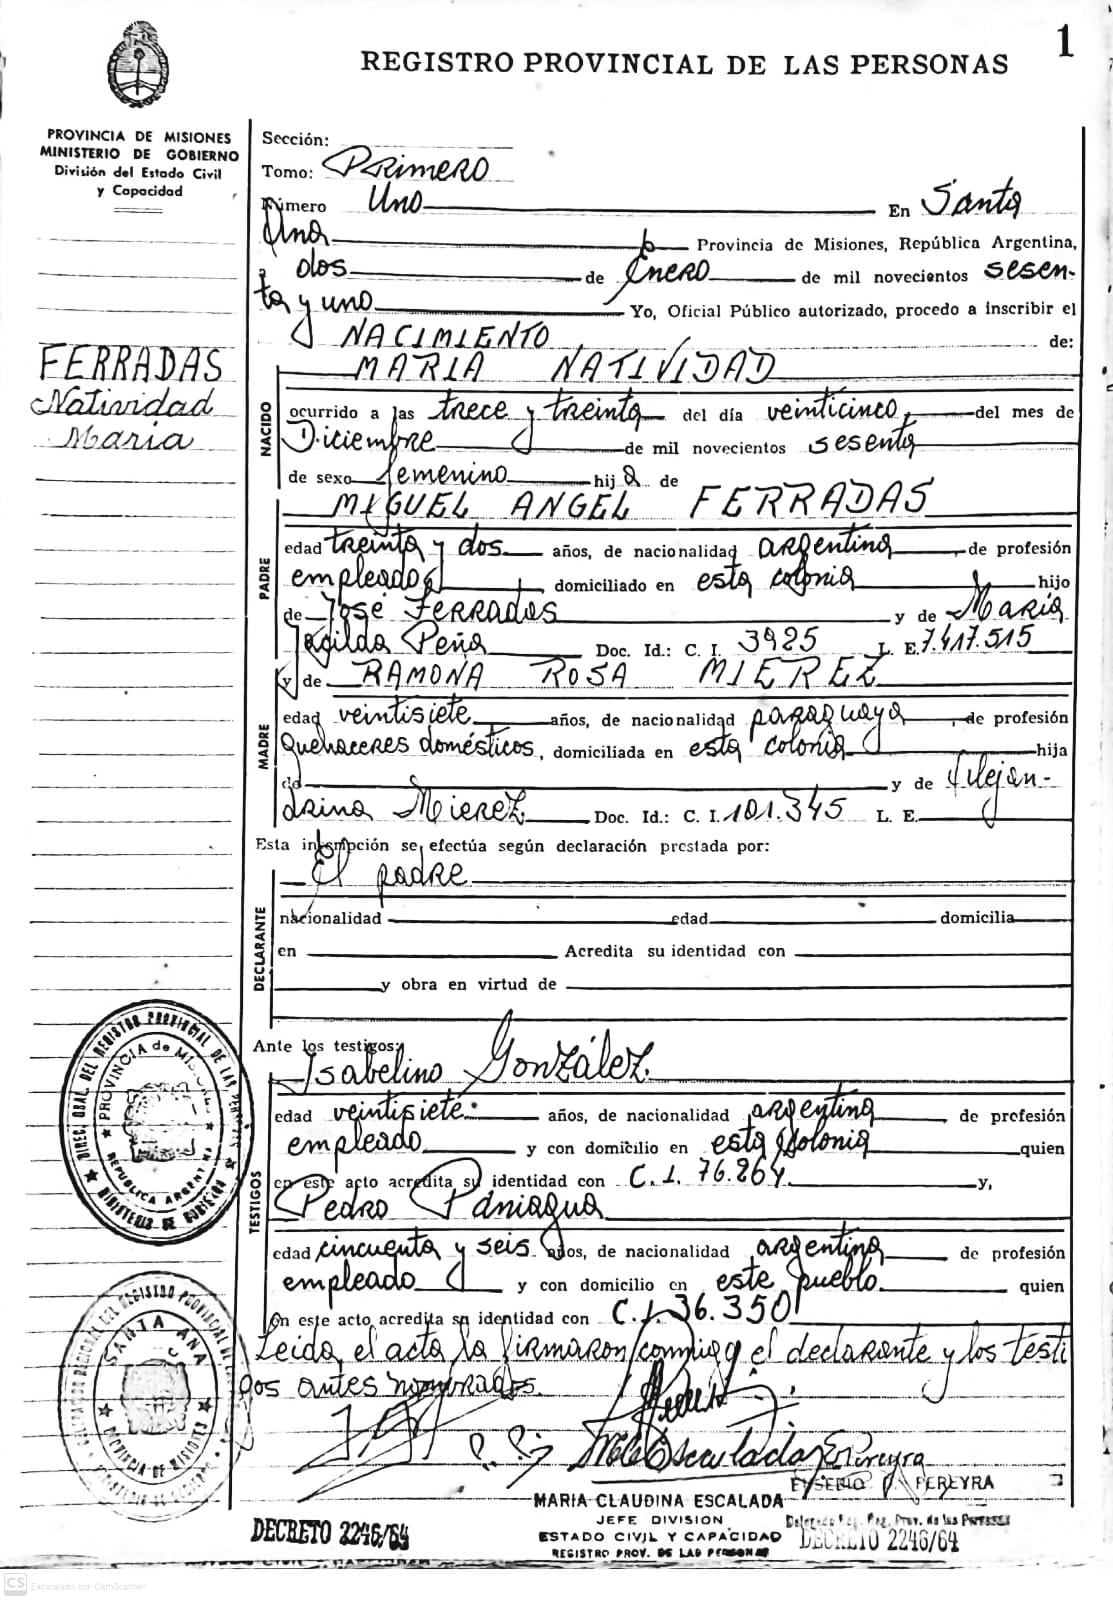 1
REGISTRO PROVINCIAL DE LAS PERSONAS
PROVINCIA DE MISIONES
MINISTERIO DE GOBIERNO
División del Estado Civil
y Capacidad
FERRADAS
Natividad
Maria
Sección:
Tomo: Primero
Número Uno En Santa
Ana Provincia de Misiones, República Argentina,
a dos de Enero de mil novecientos sesen-
ta y uno Yo, Oficial Público autorizado, procedo a inscribir el
NACIMIENTO de:
MARIA NATIVIDAD
NACIDO
ocurrido a las trece y treinta del día veinticinco, del mes de
Diciembre de mil novecientos sesenta
de sexo femenino hija de
MIGUEL ANGEL FERRADAS
PADRE
edad treinta y dos años, de nacionalidad argentina de profesión
empleado domiciliado en esta colonia hijo
de José Ferradas y de María
Peña Doc. Id.: C. I. 3925 L. E. 7.417.515
y de RAMONA ROSA MIEREZ
MADRE
edad veintisiete años, de nacionalidad paraguaya, de profesión
Quehaceres domésticos, domiciliada en esta colonia hija
de y de Alejan-
drina Mierez Doc. Id.: C. I. 101.345 L. E.
Esta inscripción se efectúa según declaración prestada por:
El padre
DECLARANTE
nacionalidad edad domicilia
en Acredita su identidad con
y obra en virtud de
Ante los testigos:
Isabelino González
TESTIGOS
edad veintisiete años, de nacionalidad argentina de profesión
empleado y con domicilio en esta Colonia quien
en este acto acredita su identidad con C.I. 76.264 y,
Pedro Paniagua
edad cincuenta y seis años, de nacionalidad argentina de profesión
empleado y con domicilio en este pueblo. quien
En este acto acredita su identidad con C.I. 36.350
Leida, el acta la firmaron conmigo el declarante y los testi
gos antes nombrados.
DIREC. GRAL. DEL REGISTRO PROVINCIAL DE LAS PERSONAS
MINISTERIO DE GOBIERNO
PROVINCIA de MISIONES
REPUBLICA ARGENTINA
SANTA ANA
PROVINCIA DE MISIONES
Escalada
E Pereyra
EUSEBIO P. PEREYRA
MARIA CLAUDINA ESCALADA
JEFE DIVISION
ESTADO CIVIL Y CAPACIDAD
REGISTRO PROV. DE LAS PERSONAS
Delegado Reg. Prov. de las Personas
DECRETO 2246/64
DECRETO 2246/64
CS Escaneado con CamScanner